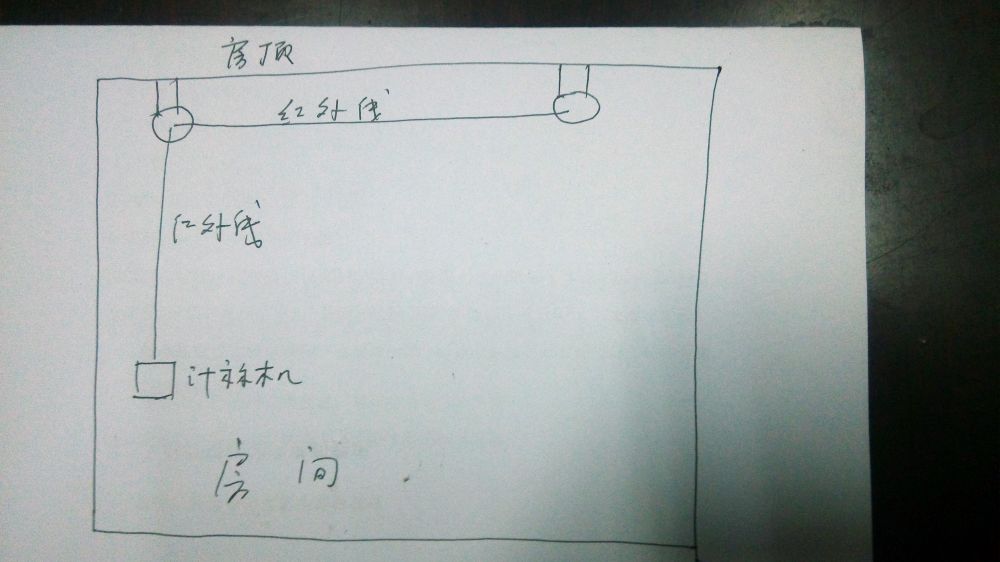 房顶
红外线
红外线
计算机
房间